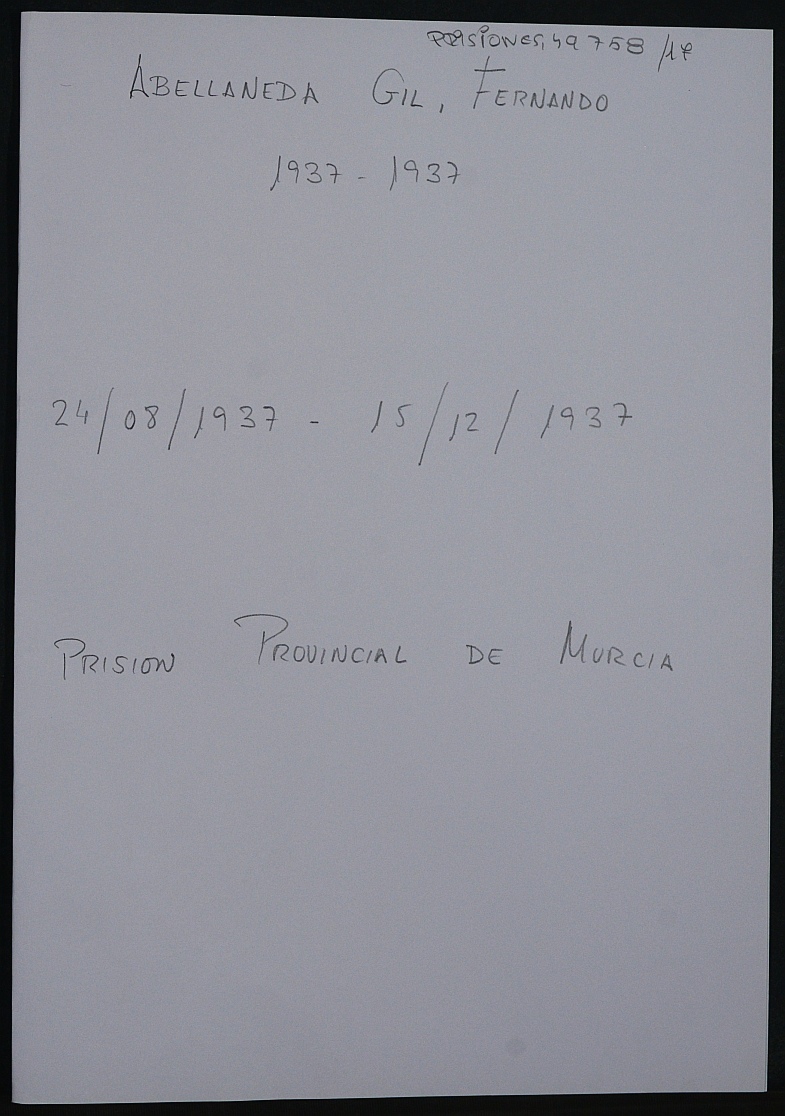 PRISIONES, 49758/17
ABELLANEDA GIL, FERNANDO
1937 - 1937
24/08/1937 - 15/12/1937
PRISION PROVINCIAL DE MURCIA